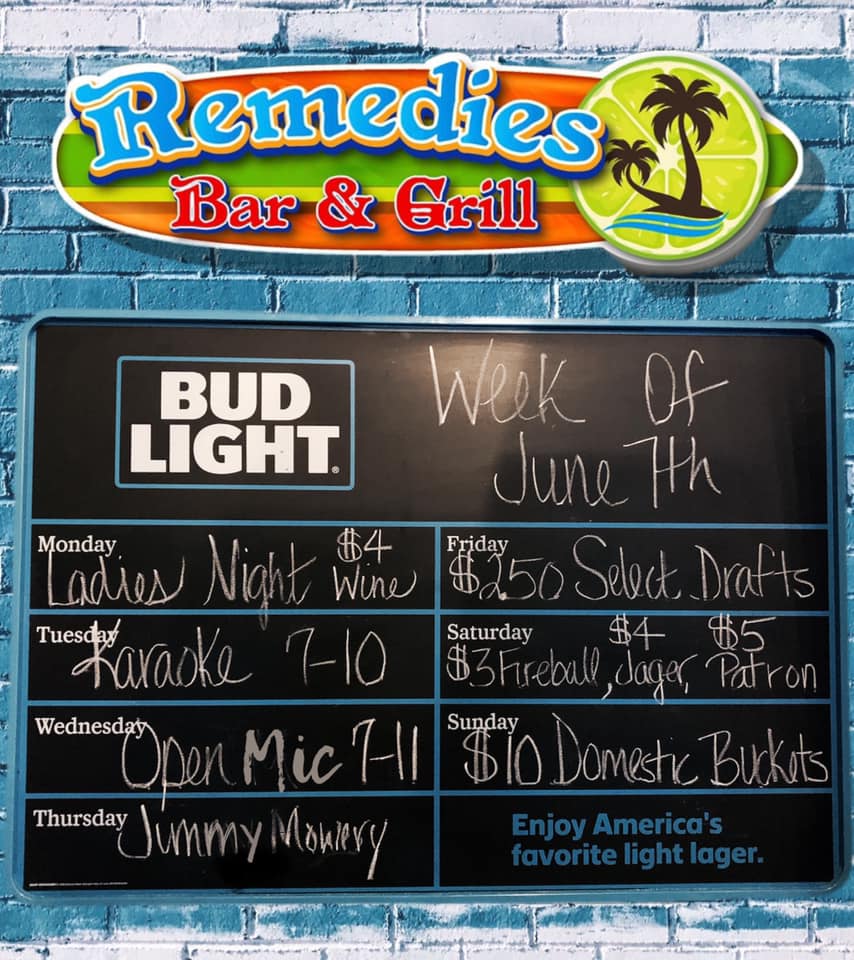 Remedies
Bar & Grill
BUD
LIGHT
Week Of
June 7th
Monday
Ladies Night $4 Wine
Tuesday
Karaoke 7-10
Wednesday
Open Mic 7-11
Thursday
Jimmy Mowery
Friday
$250 Select Drafts
Saturday
$3 Fireball, $4 Jager, $5 Patron
Sunday
$10 Domestic Buckets
Enjoy America's
favorite light lager.